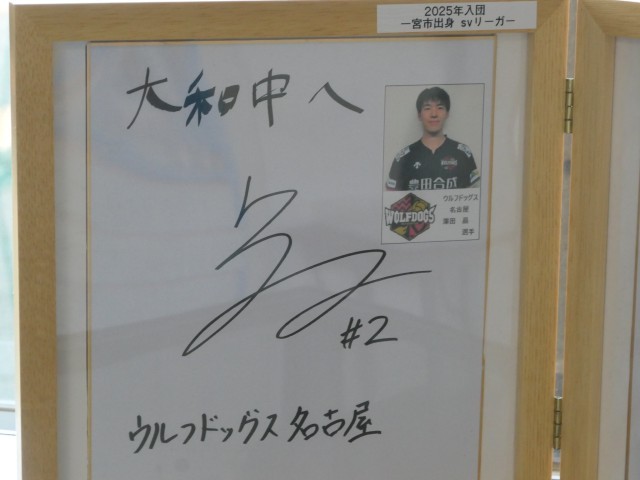 2025年入団
一宮市出身 svリーガー
大和中へ
豊田合成
WOLFDOGS
ウルフドッグス
名古屋
選手
#2
ウルフドッグス名古屋